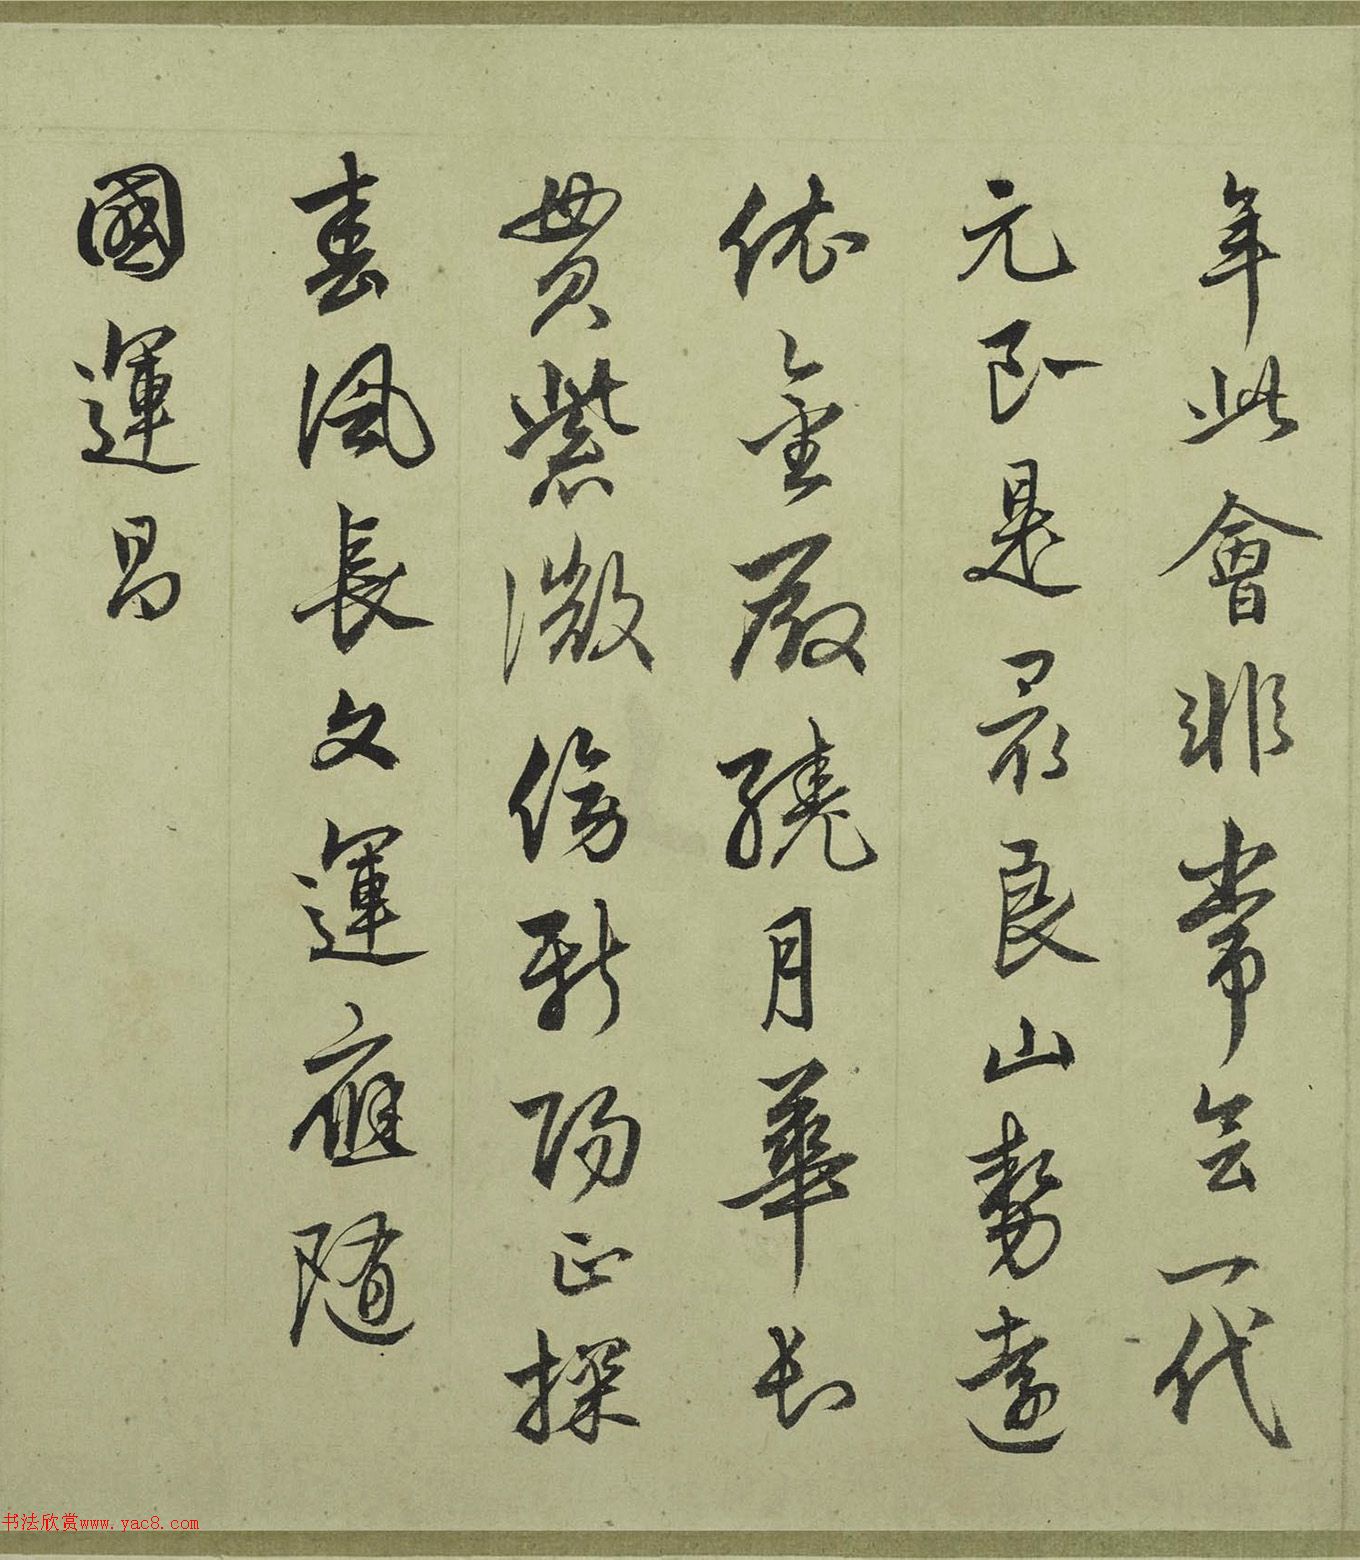 年此會非常会一代
元臣是最良山勢遠
依金殿繞月華長
貫紫微傍新陽正探
春風長文運應随
國運昌
书法欣赏www.yac8.com